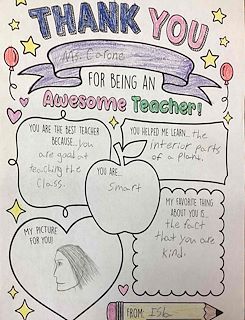 THANK YOU
Ms. Carone
FOR BEING AN
Awesome Teacher!
YOU ARE THE BEST TEACHER
BECAUSE... you
are good at
teaching the
Class.
YOU HELPED ME LEARN... the
interior parts
of a plant.
YOU ARE...
Smart
MY FAVORITE THING
ABOUT YOU IS...
the fact
that you are
kind.
MY PICTURE
FOR YOU!
FROM: